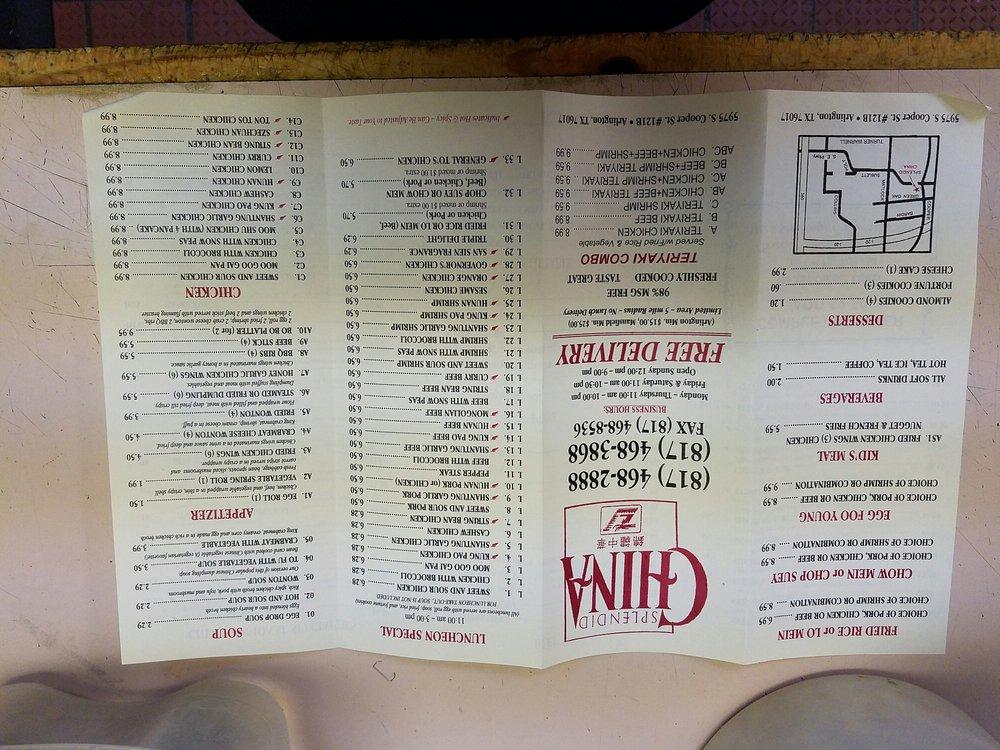 FRIED RICE or LO MEIN
CHOICE OF PORK, CHICKEN OR BEEF 6.95
CHOICE OF SHRIMP OR COMBINATION 8.99
CHOW MEIN or CHOP SUEY
CHOICE OF PORK, CHICKEN OR BEEF 8.99
CHOICE OF SHRIMP OR COMBINATION 8.99
EGG FOO YOUNG
CHOICE OF PORK, CHICKEN OR BEEF 9.59
CHOICE OF SHRIMP OR COMBINATION 9.59
KID'S MEAL
A51. FRIED CHICKEN WINGS (3) CHICKEN
NUGGET & FRENCH FRIES 5.59
BEVERAGES
ALL SOFT DRINKS 2.00
HOT TEA, ICE TEA, COFFEE 1.50
DESSERTS
ALMOND COOKIES (4) 1.20
FORTUNE COOKIES (3) .60
CHEESE CAKE (1) 2.99
I-20
I-20
SARDIN
GREEN OAK
COOPER
MATLOCK
COLLINS
360
SPLENDID CHINA
SUBLETT
S.E. Pkwy
TURNER WARNELL
5975 S. Cooper St. #121B • Arlington, TX 76017
SPLENDID
CHINA
錦繡中華
(817) 468-2888
(817) 468-3868
FAX (817) 468-8536
BUSINESS HOURS:
Monday – Thursday 11:00 am – 10:00 pm
Friday & Saturday 11:00 am – 10:30 pm
Open Sunday 12:00 pm – 9:00 pm
FREE DELIVERY
Limited Area – 5 mile Radius – No Lunch Delivery
(Arlington Min. $15.00, Mansfield Min. $25.00)
98% MSG FREE
FRESHLY COOKED TASTE GREAT
TERIYAKI COMBO
Served w/Fried Rice & Vegetable
A. TERIYAKI CHICKEN 8.99
B. TERIYAKI BEEF 9.59
C. TERIYAKI SHRIMP 9.59
AB. CHICKEN+BEEF TERIYAKI 9.59
AC. CHICKEN+SHRIMP TERIYAKI 9.59
BC. BEEF+SHRIMP TERIYAKI 9.59
ABC. CHICKEN+BEEF+SHRIMP 9.99
5975 S. Cooper St. #121B • Arlington, TX 76017
LUNCHEON SPECIAL
11:00 am – 3:00 pm
(All luncheons are served with egg roll, soup, fried rice, and fortune cookies
FOR LUNCHEON TAKE-OUT, SOUP IS NOT INCLUDED)
L 1. SWEET AND SOUR CHICKEN 6.28
L 2. CHICKEN WITH BROCCOLI 6.28
L 3. MOO GOO GAI PAN 6.28
L 4. KUNG PAO CHICKEN 6.28
L 5. SHANTUNG GARLIC CHICKEN 6.28
L 6. CASHEW CHICKEN 6.28
L 7. STRING BEAN CHICKEN 6.28
L 8. SWEET AND SOUR PORK 6.28
L 9. SHANTUNG GARLIC PORK 6.50
L 10. HUNAN PORK (or CHICKEN) 6.50
L 11. PEPPER STEAK 6.50
L 12. BEEF WITH BROCCOLI 6.50
L 13. SHANTUNG GARLIC BEEF 6.50
L 14. KUNG PAO BEEF 6.50
L 15. HUNAN BEEF 6.50
L 16. MONGOLIAN BEEF 6.50
L 17. BEEF WITH SNOW PEAS 6.50
L 18. STRING BEAN BEEF 6.50
L 19. CURRY BEEF 6.50
L 20. SWEET AND SOUR SHRIMP 6.50
L 21. SHRIMP WITH SNOW PEAS 6.50
L 22. SHRIMP WITH BROCCOLI 6.50
L 23. SHANTUNG GARLIC SHRIMP 6.50
L 24. KUNG PAO SHRIMP 6.50
L 25. HUNAN SHRIMP 6.50
L 26. SESAME CHICKEN 6.50
L 27. ORANGE CHICKEN 6.50
L 28. GOVERNOR'S CHICKEN 6.50
L 29. SAN SIEN FRAGRANCE 6.50
L 30. TRIPLE DELIGHT 6.29
L 31. FRIED RICE OR LO MEIN (Beef,
Chicken or Pork) 5.70
Shrimp or mixed $1.00 extra
L 32. CHOP SUEY OR CHOW MEIN
(Beef, Chicken or Pork) 5.70
Shrimp or mixed $1.00 extra
L 33. GENERAL TO'S CHICKEN 6.50
Indicates Hot & Spicy – Can Be Adjusted to Your Taste
SOUP
01. EGG DROP SOUP 2.29
Eggs blended into a hearty broth
02. HOT AND SOUR SOUP 2.29
Spicy, Rich chicken broth with pork, tofu and mushroom
03. WONTON SOUP 2.29
Our version of this popular Chinese dumpling soup
04. TO FU WITH VEGETABLE SOUP 3.50
Bean curd with Chinese vegetable (a vegetarian favorite)
05. CRABMEAT WITH VEGETABLE 3.99
King crabmeat, creamy corn and egg made in a rich chicken broth
APPETIZER
A1. EGG ROLL (1) 1.50
Chicken, beef, and vegetable wrapped in a thin, crispy shell
A2. VEGETABLE SPRING ROLL (1) 1.99
Fresh cabbage, bean sprouts, sliced mushrooms and
carrot strips in crispy wrapper
A3. FRIED CHICKEN WINGS (6) 4.50
Chicken wings marinated in a wine sauce and deep fried
A4. CRABMEAT CHEESE WONTON (4) 4.50
King crabmeat, shrimp, cream cheese in a puff
A5. FRIED WONTON (4) 3.99
Flour wrapped filled with meat, deep fried till crispy
A6. STEAMED OR FRIED DUMPLING (6) 5.59
Dumpling stuffed with meat and vegetables
A7. HONEY GARLIC CHICKEN WINGS (6) 5.59
Chicken wings marinated in a honey garlic sauce
A8. BBQ RIBS (4) 5.59
A9. BEEF STICK (4) 5.59
A10. BO BO PLATTER (for 2) 9.95
2 egg roll, 2 fried shrimp, 2 crab cheese wonton, 2 BBQ ribs,
2 chicken wings and 2 beef stick served with flaming brazier
CHICKEN
C1. SWEET AND SOUR CHICKEN 8.99
C2. MOO GOO GAI PAN 8.99
C3. CHICKEN WITH BROCCOLI 8.99
C4. CHICKEN WITH SNOW PEAS 8.99
C5. MOO SHU CHICKEN (WITH 4 PANCAKE) 8.99
C6. SHANTUNG GARLIC CHICKEN 8.99
C7. KUNG PAO CHICKEN 8.99
C8. CASHEW CHICKEN 8.99
C9. HUNAN CHICKEN 8.99
C10. LEMON CHICKEN 8.99
C11. CURRY CHICKEN 8.99
C12. STRING BEAN CHICKEN 8.99
C13. SZECHUAN CHICKEN 8.99
C14. TON TO'S CHICKEN 8.99